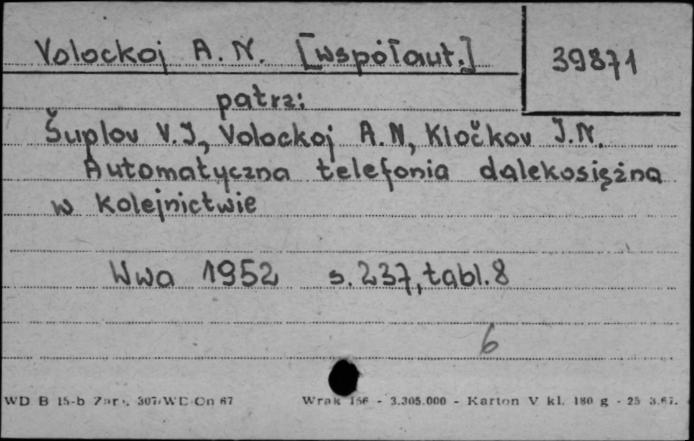 Volockoj A. N. [współaut.]
39871
patrz:
Šuplov V.I., Volockoj A.N, Kločkov I.N.
Automatyczna telefonia dalekosiężna
w kolejnictwie
Wwa 1952 s. 237, tabl. 8
6
WD B 15-b Zarz. 307/WD On 67
Wrak 156 - 3.305.000 - Karton V kl. 180 g - 25 3.67.